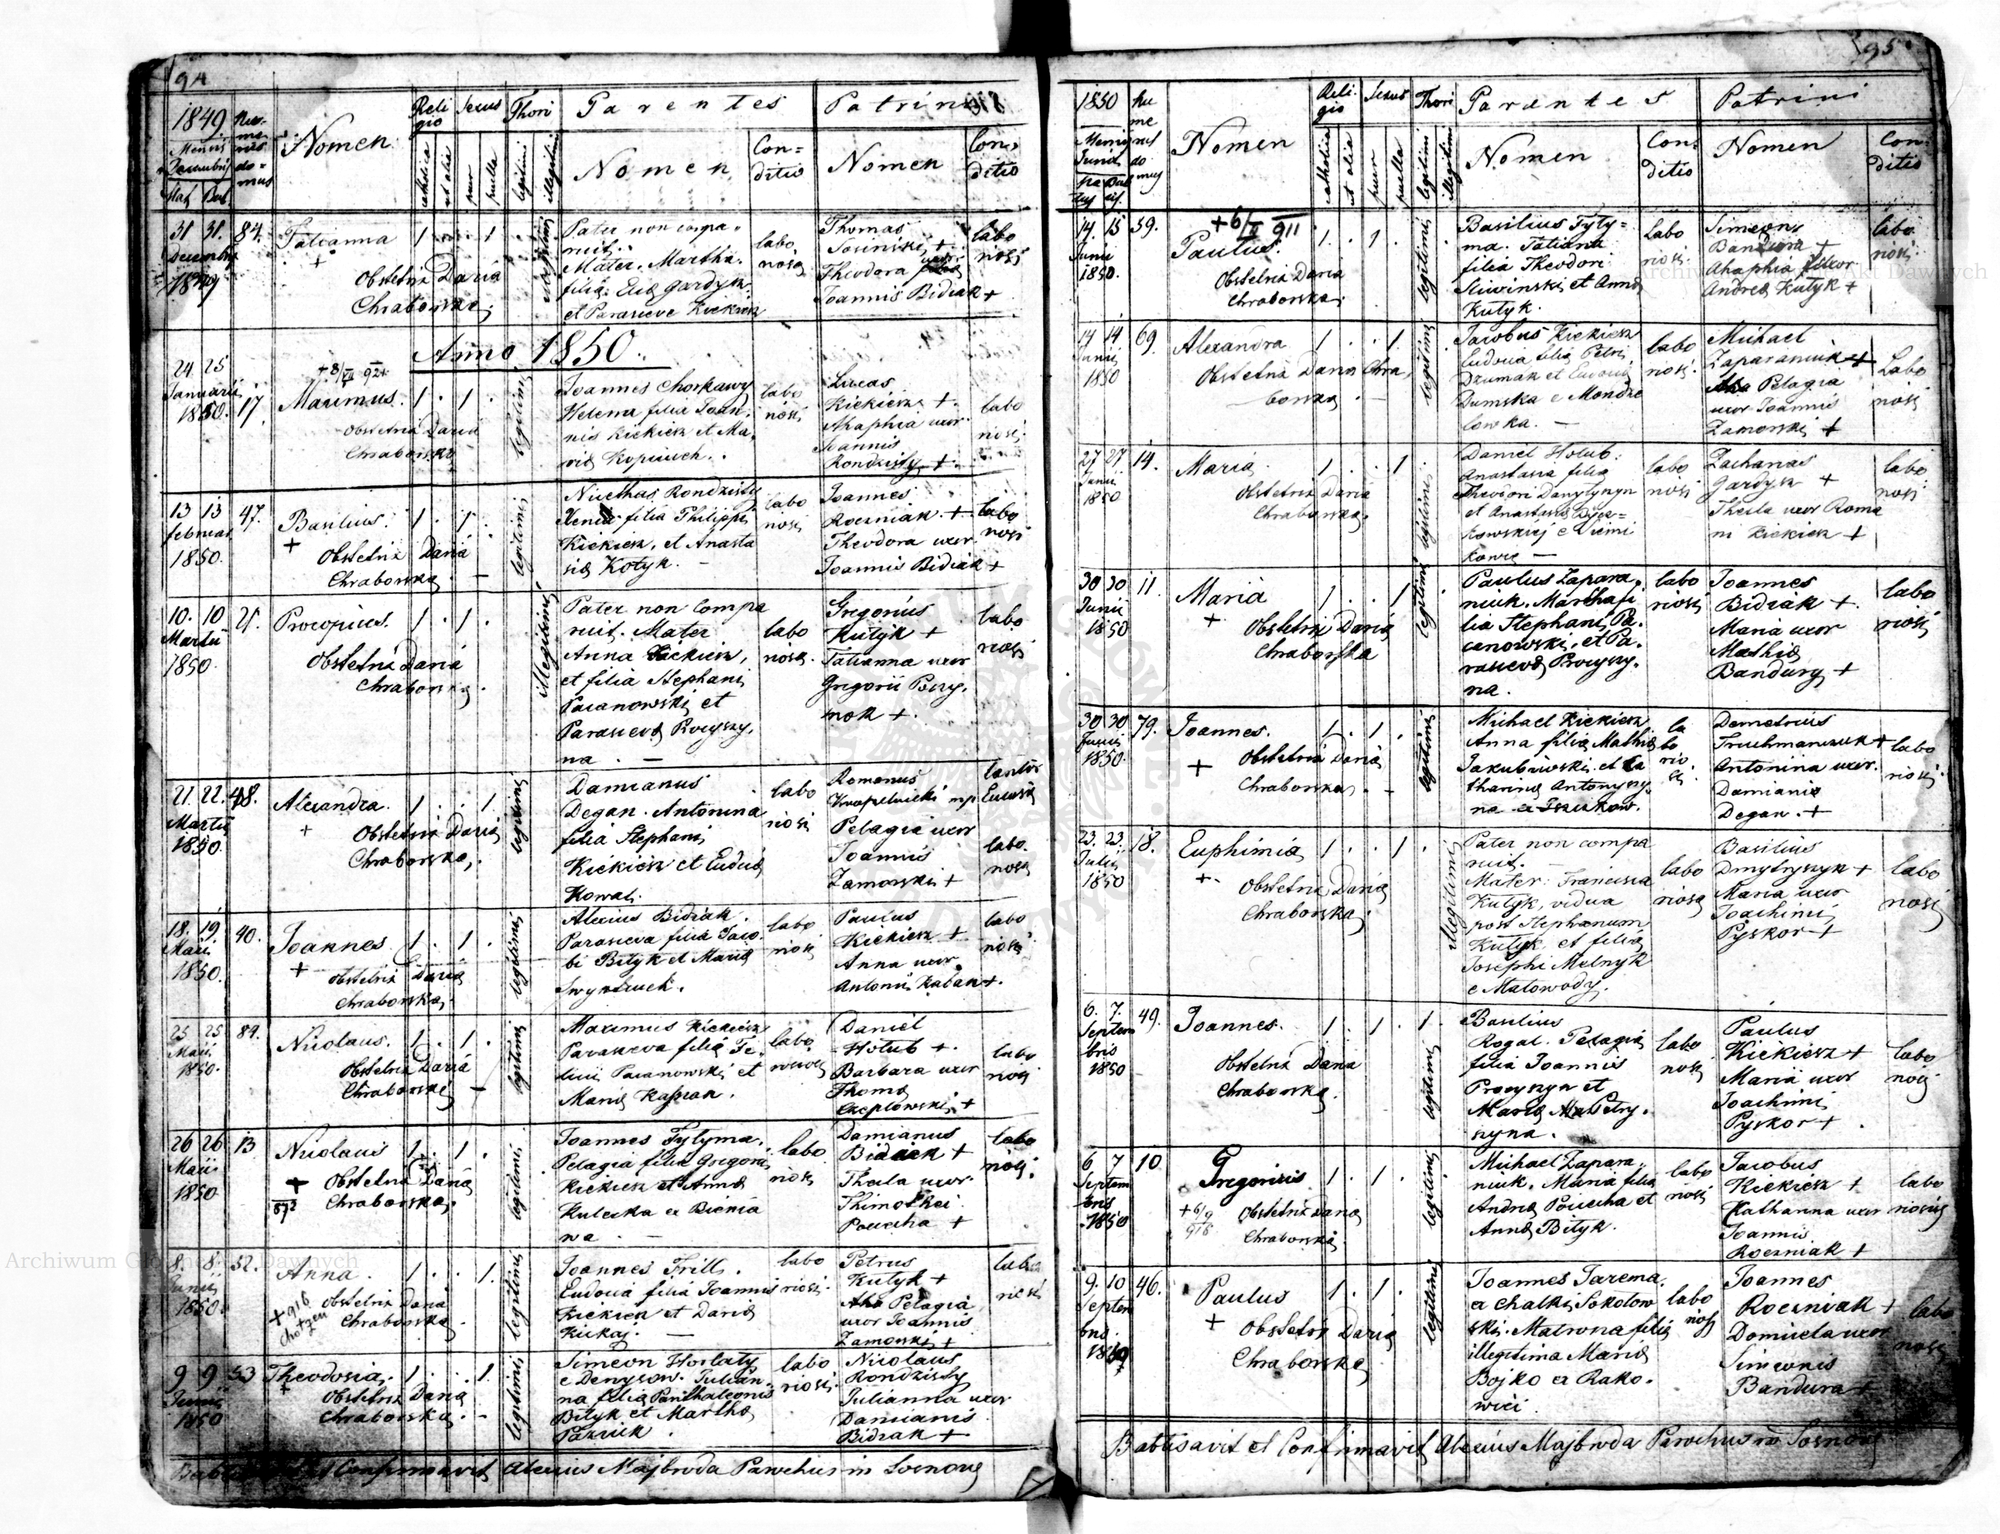 94
1849
Mensis
Decembris
Nat. Bap.
Nume
rus
do
mus
Nomen
Reli
gio
Sexus
Thori
catholica
aut alia
puer
puella
legitimi
illegitimi
Parentes
Nomen
Con=
ditio
Patrini
Nomen
Con=
ditio
31 31. 84.
Decembris
1849
Tatianna 1 . . 1
+
Obstetrix Daria
Chraborska
illegitimi
Pater non compa=
ruit.
Mater. Martha
filia Gardysz
et Parasceve Kickiesz
labo
riosa
Thomas
+
Theodora
Joannis Bidiak +
labo
riosi
Anno 1850.
24 25
Januarii
1850. 17.
+8/VII 921
Maximus. 1 . 1 .
Obstetrix Daria
Chraborska
legitimi
Joannes Chorkawy
Helena filia Joan
nis Kickiesz et Ma
ria
labo
riosi
Lucas
Kickiesz +
Ahaphia uxor
Joannis
Rondzisty +
labo
riosi
13 13 47.
februar
1850.
Basilius. 1 . 1 .
+
Obstetrix Daria
Chraborska. —
legitimi
Nicethas Rondzisty
Xenia filia Philippi
Kickiesz, et Anasta
sia Kotyk. —
labo
riosi
Joannes
Roczniak +
Theodora uxor
Joannis Bidiak +
labo
riosi
10. 10 21.
Martii
1850.
Procopius. 1 . 1 .
Obstetrix Daria
Chraborska.
illegitimi
Pater non compa
ruit. Mater
Anna Kickiesz,
et filia Stephani
Pacanowski et
Parasceva Procyszy
na . —
labo
riosa.
Gregorius
Kutyk +
Tatianna uxor
Gregorii
+
labo
riosi
21. 22. 48.
Martii
1850.
Alexandra. 1 . . 1
+
Obstetrix Daria
Chraborska.
legitimi
Damianus
Degan. Antonina
filia Stephani
Kickiesz et Eudocia
Kowal.
labo
riosi
Romanus
Knapelnicki mp
Pelagia uxor
Joannis
Zamorski +
Cantor
labo.
riosi
18. 19. 40.
Maii
1850.
Joannes 1 . 1 .
+
Obstetrix Daria
Chraborska.
legitimi
Alexius Bidiak.
Parasceva filia Jaco
bi Bityk et Maria
labo.
riosi
Paulus
Kickiesz +
Anna uxor
Antonii Kaban +.
labo
riosi
25 25 89.
Maii
1850.
Nicolaus. 1 . 1 .
Obstetrix Daria
Chraborska —
legitimi
Maximus Kickiesz
Parasceva filia Fe
licii Pacanowski et
Maria
labo
riosi
Daniel
Holub +.
Barbara uxor
Thoma
+
labo
riosi
26 26 13
Maii
1850
Nicolaus 1 . 1 .
+
872
Obstetrix Daria
Chraborska.
legitimi.
Joannes Tytyma.
Pelagia filia Gregorii
Kickiesz et Anna
labo
riosi
Damianus
Bidiak +
Thecla uxor
Thimothei
+
labo
riosi.
8. 8 52.
Junii
1850.
Anna. 1 . . 1.
+916
Obstetrix Daria
Chraborska.
legitimi
Joannes Frill.
Eudocia filia Joannis
Kickiesz et Daria
—
labo
riosi.
Petrus
Kutyk +
Pelagia
uxor Joannis
Zamorski +
labo
riosi
9 9 53
Junii
1850
Theodosia. 1 . . 1.
+
Obstetrix Daria
Chraborska. —
legitimi
Simeon Horlaty
e Denysow. Julian
na filia Panthaleonis
Bityk et Martha
labo
riosi.
Nicolaus
Rondzisty
Julianna uxor
Damianis
Bidiak +
et Confirmavit Alexius Majbroda Parochus in Sosnow
95
1850
Mensis
Junii
Na
tus
Bap.
nu
me
rus
do
mus
Nomen
Reli
gio
Sexus
Thori
catholica
et alia
puer
puella
legitimi
illegitimi
Parentes
Nomen
Con
ditio
Patrini
Nomen
Con=
ditio
14. 15 59.
Junii
1850.
+6/II 911
Paulus. 1 . 1 .
Obstetrix Daria
Chraborska.
legitimi
Basilius Tyty=
ma. Tatiana
filia Theodori
Sliwinski et Anna
Kutyk.
labo
riosi.
Simeon
Bandura +
Ahaphia uxor
Andrea Kutyk +
labo
riosi.
14 14. 69.
Junii
1850
Alexandra 1 . . 1.
Obstetrix Daria Chra,
borska . —
legitimi
Jacobus Kickiesz
Eudocia filia Petri
Dzumak et
labo
riosi.
Michael
Zaparaniuk +
Pelagia
uxor Joannis
Zamorski +
Labo
riosi
27 27. 14.
Junii
1850
Maria 1 . . 1
Obstetrix Daria
Chraborska.
legitimi
Daniel Holub.
Anastasia filia
Theodori Danylynyn
et Anastasia
labo
riosi
Zacharias
Gardysz +
Thecla uxor Roma
ni Kickiesz +
labo
riosi
30 30 11.
Junii
1850
Maria 1 . . 1
+
Obstetrix Daria
Chraborska
legitimi
Paulus Zapara,
niuk. Martha fi
lia Stephani Pa
canowski, et Pa.
rasceva Procyszy.
na.
labo
riosi
Joannes
Bidiak +.
Maria uxor
Mathia
Bandury +
labo
riosi
30 30 79.
Junii
1850.
Joannes. 1 . 1 .
+
Obstetrix Daria
Chraborska. —
legitimi
Michael Kickiesz
Anna filia Mathia
Jakubowski et Ca
tharina Antonyszy
na
la
bo
rio.
si
Demetrius
+
Antonina uxor
Damiani
Degan. +
labo
riosi
23. 23. 18.
Julii
1850
Euphimia 1 . . 1.
+
Obstetrix Daria
Chraborska.
illegitimi
Pater non compa
ruit. —
Mater: Francisca
Kutyk, vidua
post Stephanum
Kutyk et filia
Josephi Melnyk
e Malowody.
labo
riosa
Basilius
Dmytryszyn +
Maria uxor
Joachimi
Pyskor +
labo
riosi
6. 7. 49.
Septem
bris
1850
Joannes. 1 . 1 .
Obstetrix Daria
Chraborska.
legitimi
Basilius
Rogal. Pelagia
filia Joannis
Procyszyn et
Maria
labo.
riosi
Paulus
Kickiesz +
Maria uxor
Joachimi
Pyskor + .
labo
riosi
6. 7 10.
Septem
bris
1850
Gregorius 1 . 1 .
+6/9
918
Obstetrix Daria
Chraborska.
legitimi
Michael Zapara
niuk. Maria filia
Andrea et
Anna Bityk.
labo
riosi
Jacobus
Kickiesz +
Katharina uxor
Joannis
Roczniak +
labo
riosi
9. 10 46.
Septem
bris.
1850
Paulus 1 . 1 .
+
Obstetrix Daria
Chraborska
legitimi
Joannes Jarema.
ex Chatki Sokolow
ski. Matrona filia
illegitima Maria
Bojko ex Rako.
wiec.
labo
riosi
Joannes
Roczniak +
Domicela uxor
Simeonis
Bandura +
labo
riosi
Babtisavit et Confirmavit Alexius Majbroda Parochus in Sosnow
Archiwum Główne Akt Dawnych